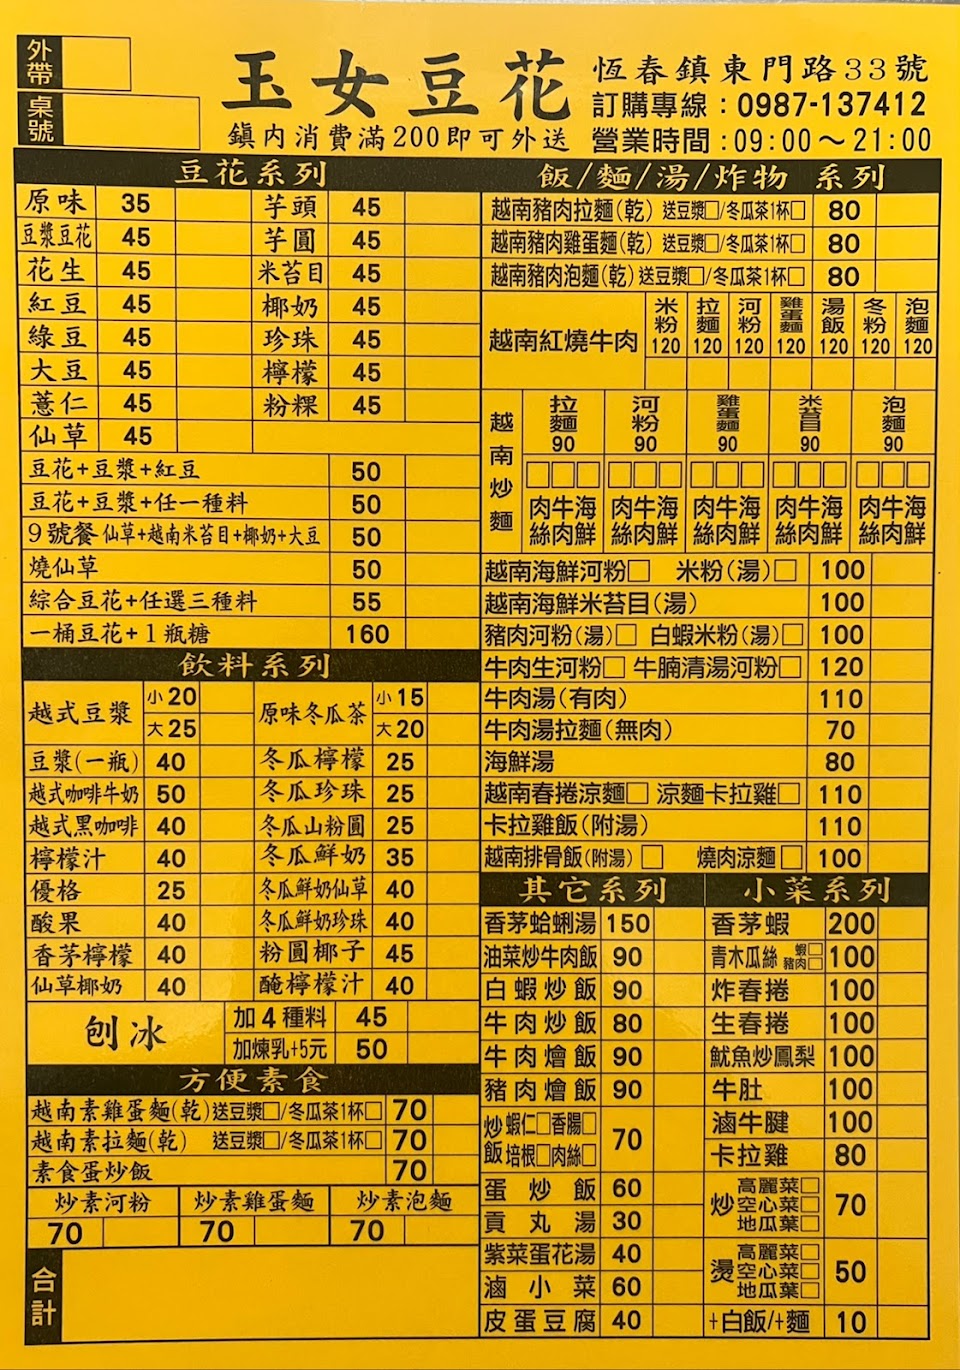 外帶
桌號
玉女豆花
鎮內消費滿200即可外送
恆春鎮東門路33號
訂購專線：0987-137412
營業時間：09:00～21:00
豆花系列
原味 35 芋頭 45
豆漿豆花 45 芋圓 45
花生 45 米苔目 45
紅豆 45 椰奶 45
綠豆 45 珍珠 45
大豆 45 檸檬 45
薏仁 45 粉粿 45
仙草 45
豆花+豆漿+紅豆 50
豆花+豆漿+任一種料 50
9號餐 仙草+越南米苔目+椰奶+大豆 50
燒仙草 50
綜合豆花+任選三種料 55
一桶豆花+1瓶糖 160
飲料系列
越式豆漿 小20 大25 原味冬瓜茶 小15 大20
豆漿(一瓶) 40 冬瓜檸檬 25
越式咖啡牛奶 50 冬瓜珍珠 25
越式黑咖啡 40 冬瓜山粉圓 25
檸檬汁 40 冬瓜鮮奶 35
優格 25 冬瓜鮮奶仙草 40
酸果 40 冬瓜鮮奶珍珠 40
香茅檸檬 40 粉圓椰子 45
仙草椰奶 40 醃檸檬汁 40
刨冰 加4種料 45
加煉乳+5元 50
方便素食
越南素雞蛋麵(乾)送豆漿□/冬瓜茶1杯□ 70
越南素拉麵(乾) 送豆漿□/冬瓜茶1杯□ 70
素食蛋炒飯 70
炒素河粉 炒素雞蛋麵 炒素泡麵
70 70 70
合計
飯/麵/湯/炸物 系列
越南豬肉拉麵(乾) 送豆漿□/冬瓜茶1杯□ 80
越南豬肉雞蛋麵(乾) 送豆漿□/冬瓜茶1杯□ 80
越南豬肉泡麵(乾) 送豆漿□/冬瓜茶1杯□ 80
越南紅燒牛肉 米粉120 拉麵120 河粉120 雞蛋麵120 湯飯120 冬粉120 泡麵120
越南炒麵 拉麵90 河粉90 雞蛋麵90 米苔目90 泡麵90
□□□ □□□ □□□ □□□ □□□
肉絲牛肉海鮮 肉絲牛肉海鮮 肉絲牛肉海鮮 肉絲牛肉海鮮 肉絲牛肉海鮮
越南海鮮河粉□ 米粉(湯)□ 100
越南海鮮米苔目(湯) 100
豬肉河粉(湯)□ 白蝦米粉(湯)□ 100
牛肉生河粉□ 牛腩清湯河粉□ 120
牛肉湯(有肉) 110
牛肉湯拉麵(無肉) 70
海鮮湯 80
越南春捲涼麵□ 涼麵卡拉雞□ 110
卡拉雞飯(附湯) 110
越南排骨飯(附湯)□ 燒肉涼麵□ 100
其它系列
香茅蛤蜊湯 150
油菜炒牛肉飯 90
白蝦炒飯 90
牛肉炒飯 80
牛肉燴飯 90
豬肉燴飯 90
炒飯 蝦仁□香腸□ 培根□肉絲□ 70
蛋炒飯 60
貢丸湯 30
紫菜蛋花湯 40
滷小菜 60
皮蛋豆腐 40
小菜系列
香茅蝦 200
青木瓜絲 蝦□ 豬肉□ 100
炸春捲 100
生春捲 100
魷魚炒鳳梨 100
牛肚 100
滷牛腱 100
卡拉雞 80
炒 高麗菜□ 空心菜□ 地瓜葉□ 70
燙 高麗菜□ 空心菜□ 地瓜葉□ 50
+白飯/+麵 10